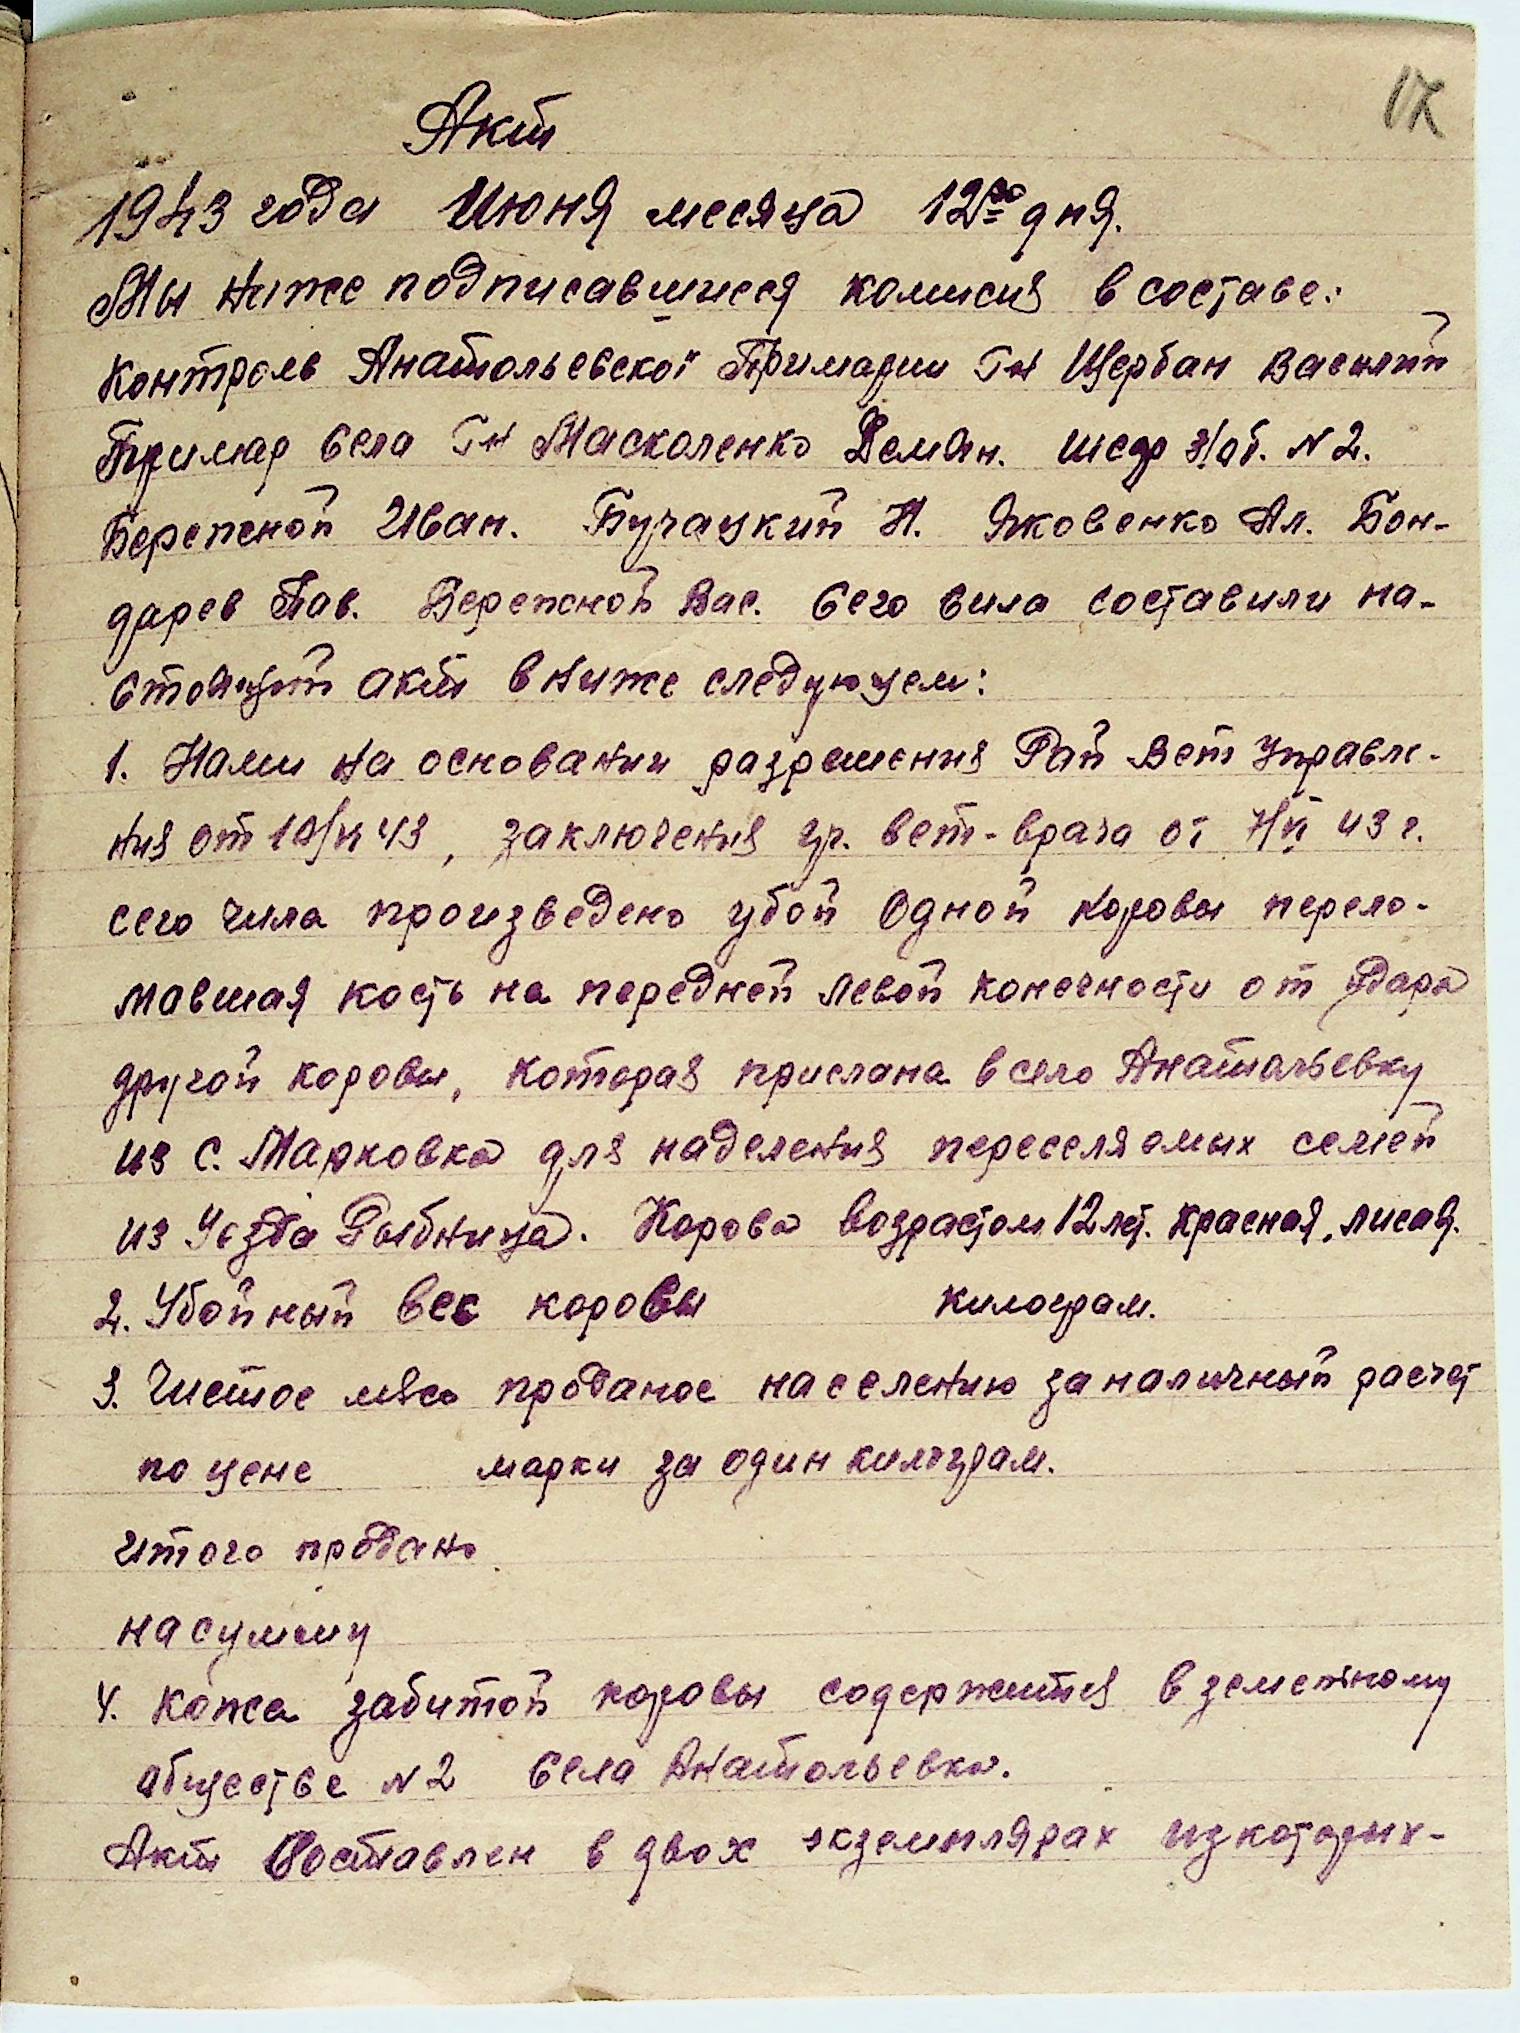 17
Акт
1943 года Июня месяца 12го дня.
Мы ниже подписавшиеся комисия в составе:
Контроль Анатольевской Примарии Гн Щербан Василий
Примар села Гн Маскаленко Демян. шеф Зоб. N 2.
Бережной Иван. Бучацкий Н. Яковенко Ал. Бон-
дарев Пав. Бережной Вас. Сего числа составили на-
стоящий акт в ниже следующем:
1. Нами на основании разрешения Рай Вет Управле-
ния от 10/VI 43, заключения уч. вет-врача от 7/VI 43 г.
сего числа произведено убой одной коровы перело-
мавшая кость на передней левой конечности от удара
другой коровы, которая прислана в село Анатольевку
из с. Марковка для наделения переселяемых семей
из Уезда Рыбница. Корова возрастом 12 лет. красная, лисая.
2. Убойный вес коровы килограм.
3. Чистое мясо проданое населению за наличный расчет
по цене марки за один килограм.
итого продано
на сумму
4. Кожа забитой коровы содержится в земельному
обществе N 2 села Анатольевка.
Акт составлен в двох экземплярах из которых-